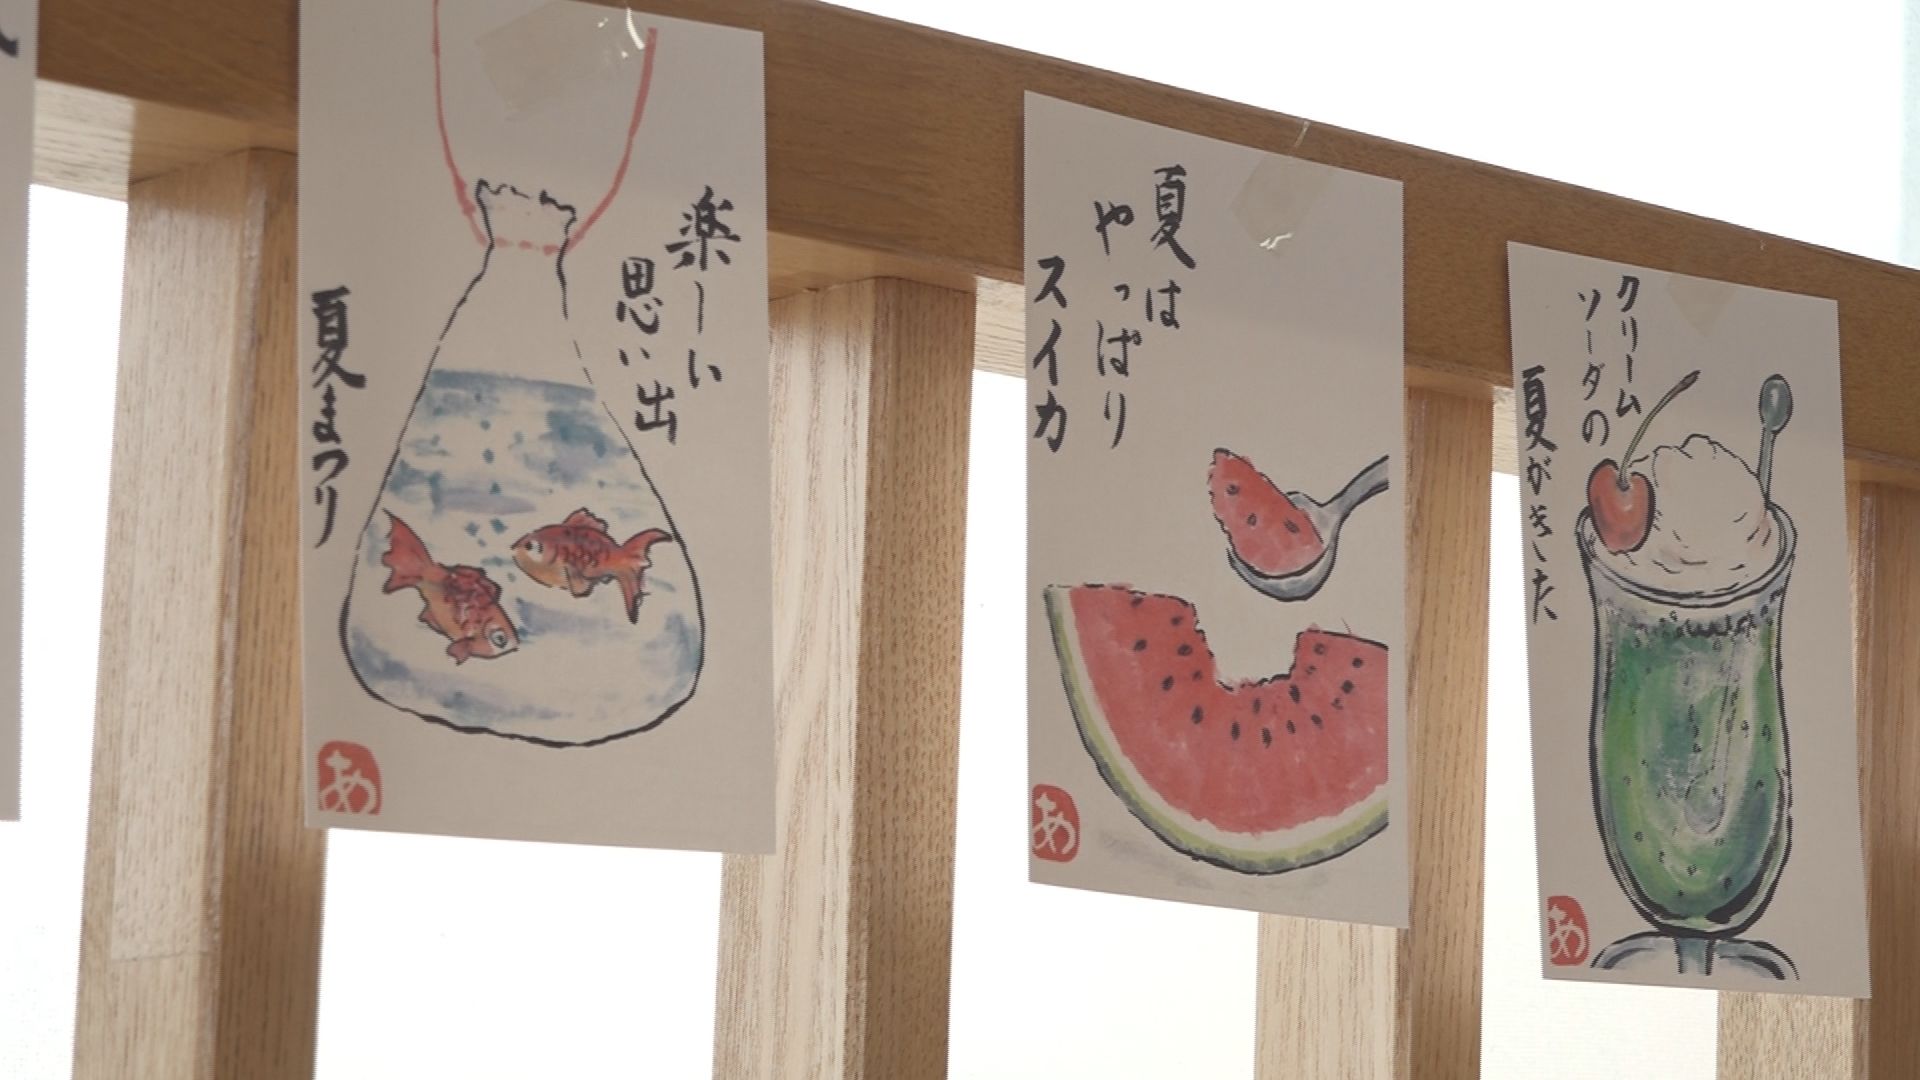 楽しい
思い出
夏まつり
あ
夏は
やっぱり
スイカ
あ
クリーム
ソーダの
夏がきた
あ